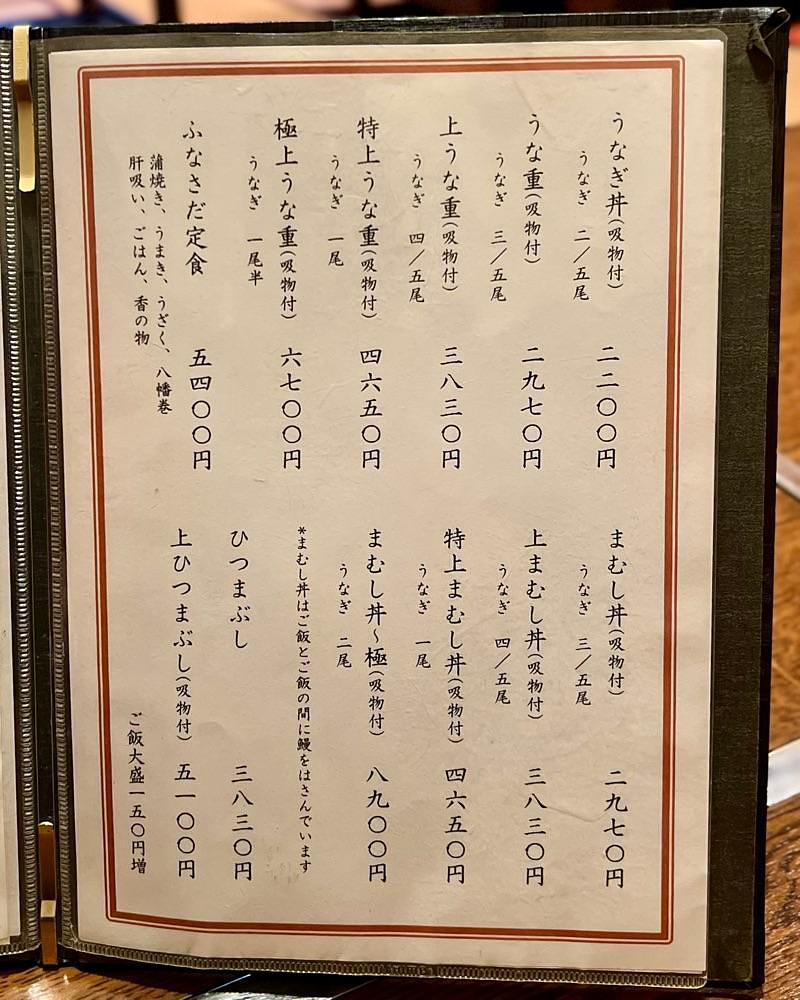 うなぎ丼(吸物付) 二二〇〇円
うなぎ 二/五尾
うな重(吸物付) 二九七〇円
うなぎ 三/五尾
上うな重(吸物付) 三八三〇円
うなぎ 四/五尾
特上うな重(吸物付) 四六五〇円
うなぎ 一尾
極上うな重(吸物付) 六七〇〇円
うなぎ 一尾半
ふなさだ定食 五四〇〇円
蒲焼き、うまき、うざく、八幡巻
肝吸い、ごはん、香の物
まむし丼(吸物付) 二九七〇円
うなぎ 三/五尾
上まむし丼(吸物付) 三八三〇円
うなぎ 四/五尾
特上まむし丼(吸物付) 四六五〇円
うなぎ 一尾
まむし丼~極(吸物付) 八九〇〇円
うなぎ 二尾
*まむし丼はご飯とご飯の間に鰻をはさんでいます
ひつまぶし 三八三〇円
上ひつまぶし(吸物付) 五一〇〇円
ご飯大盛一五〇円増